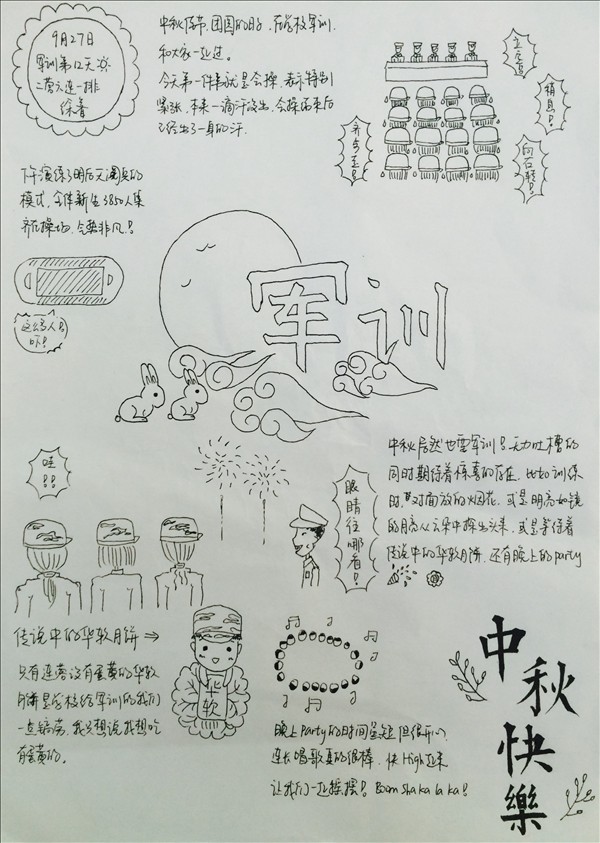 9月27日
军训第12天
二营六连一排
徐春
中秋佳节,团圆的日子,在学校军训,
和大家一起过。
今天第一件事就是会操,表示特别
紧张,本来一滴汗没出,会操结束后
已经出了一身的汗.
立定!
稍息!
齐步走!
向右转!
下午演练了明后天阅兵的
模式,全体新生3850人集
齐在操场,气势非凡!
这么多人!
吓!
军训
中秋居然也要军训!无力吐槽的
同时期待着惊喜的存在,比如训练
时,对面放的烟花,或是明亮如镜
的月亮从云朵中探出头来,或是等待着
传说中的华软月饼,还有晚上的party
哇
!!
眼睛往哪看!
传说中的华软月饼⇒
只有莲蓉没有蛋黄的华软
月饼是学校给军训的我们
一点福房,我只想说我想吃
有蛋黄的.
华软
晚上Party的时间虽短但很开心
连长唱歌真的很棒,快High起来
让我们一起摇摆!Boom sha ka la ka!
中秋快樂